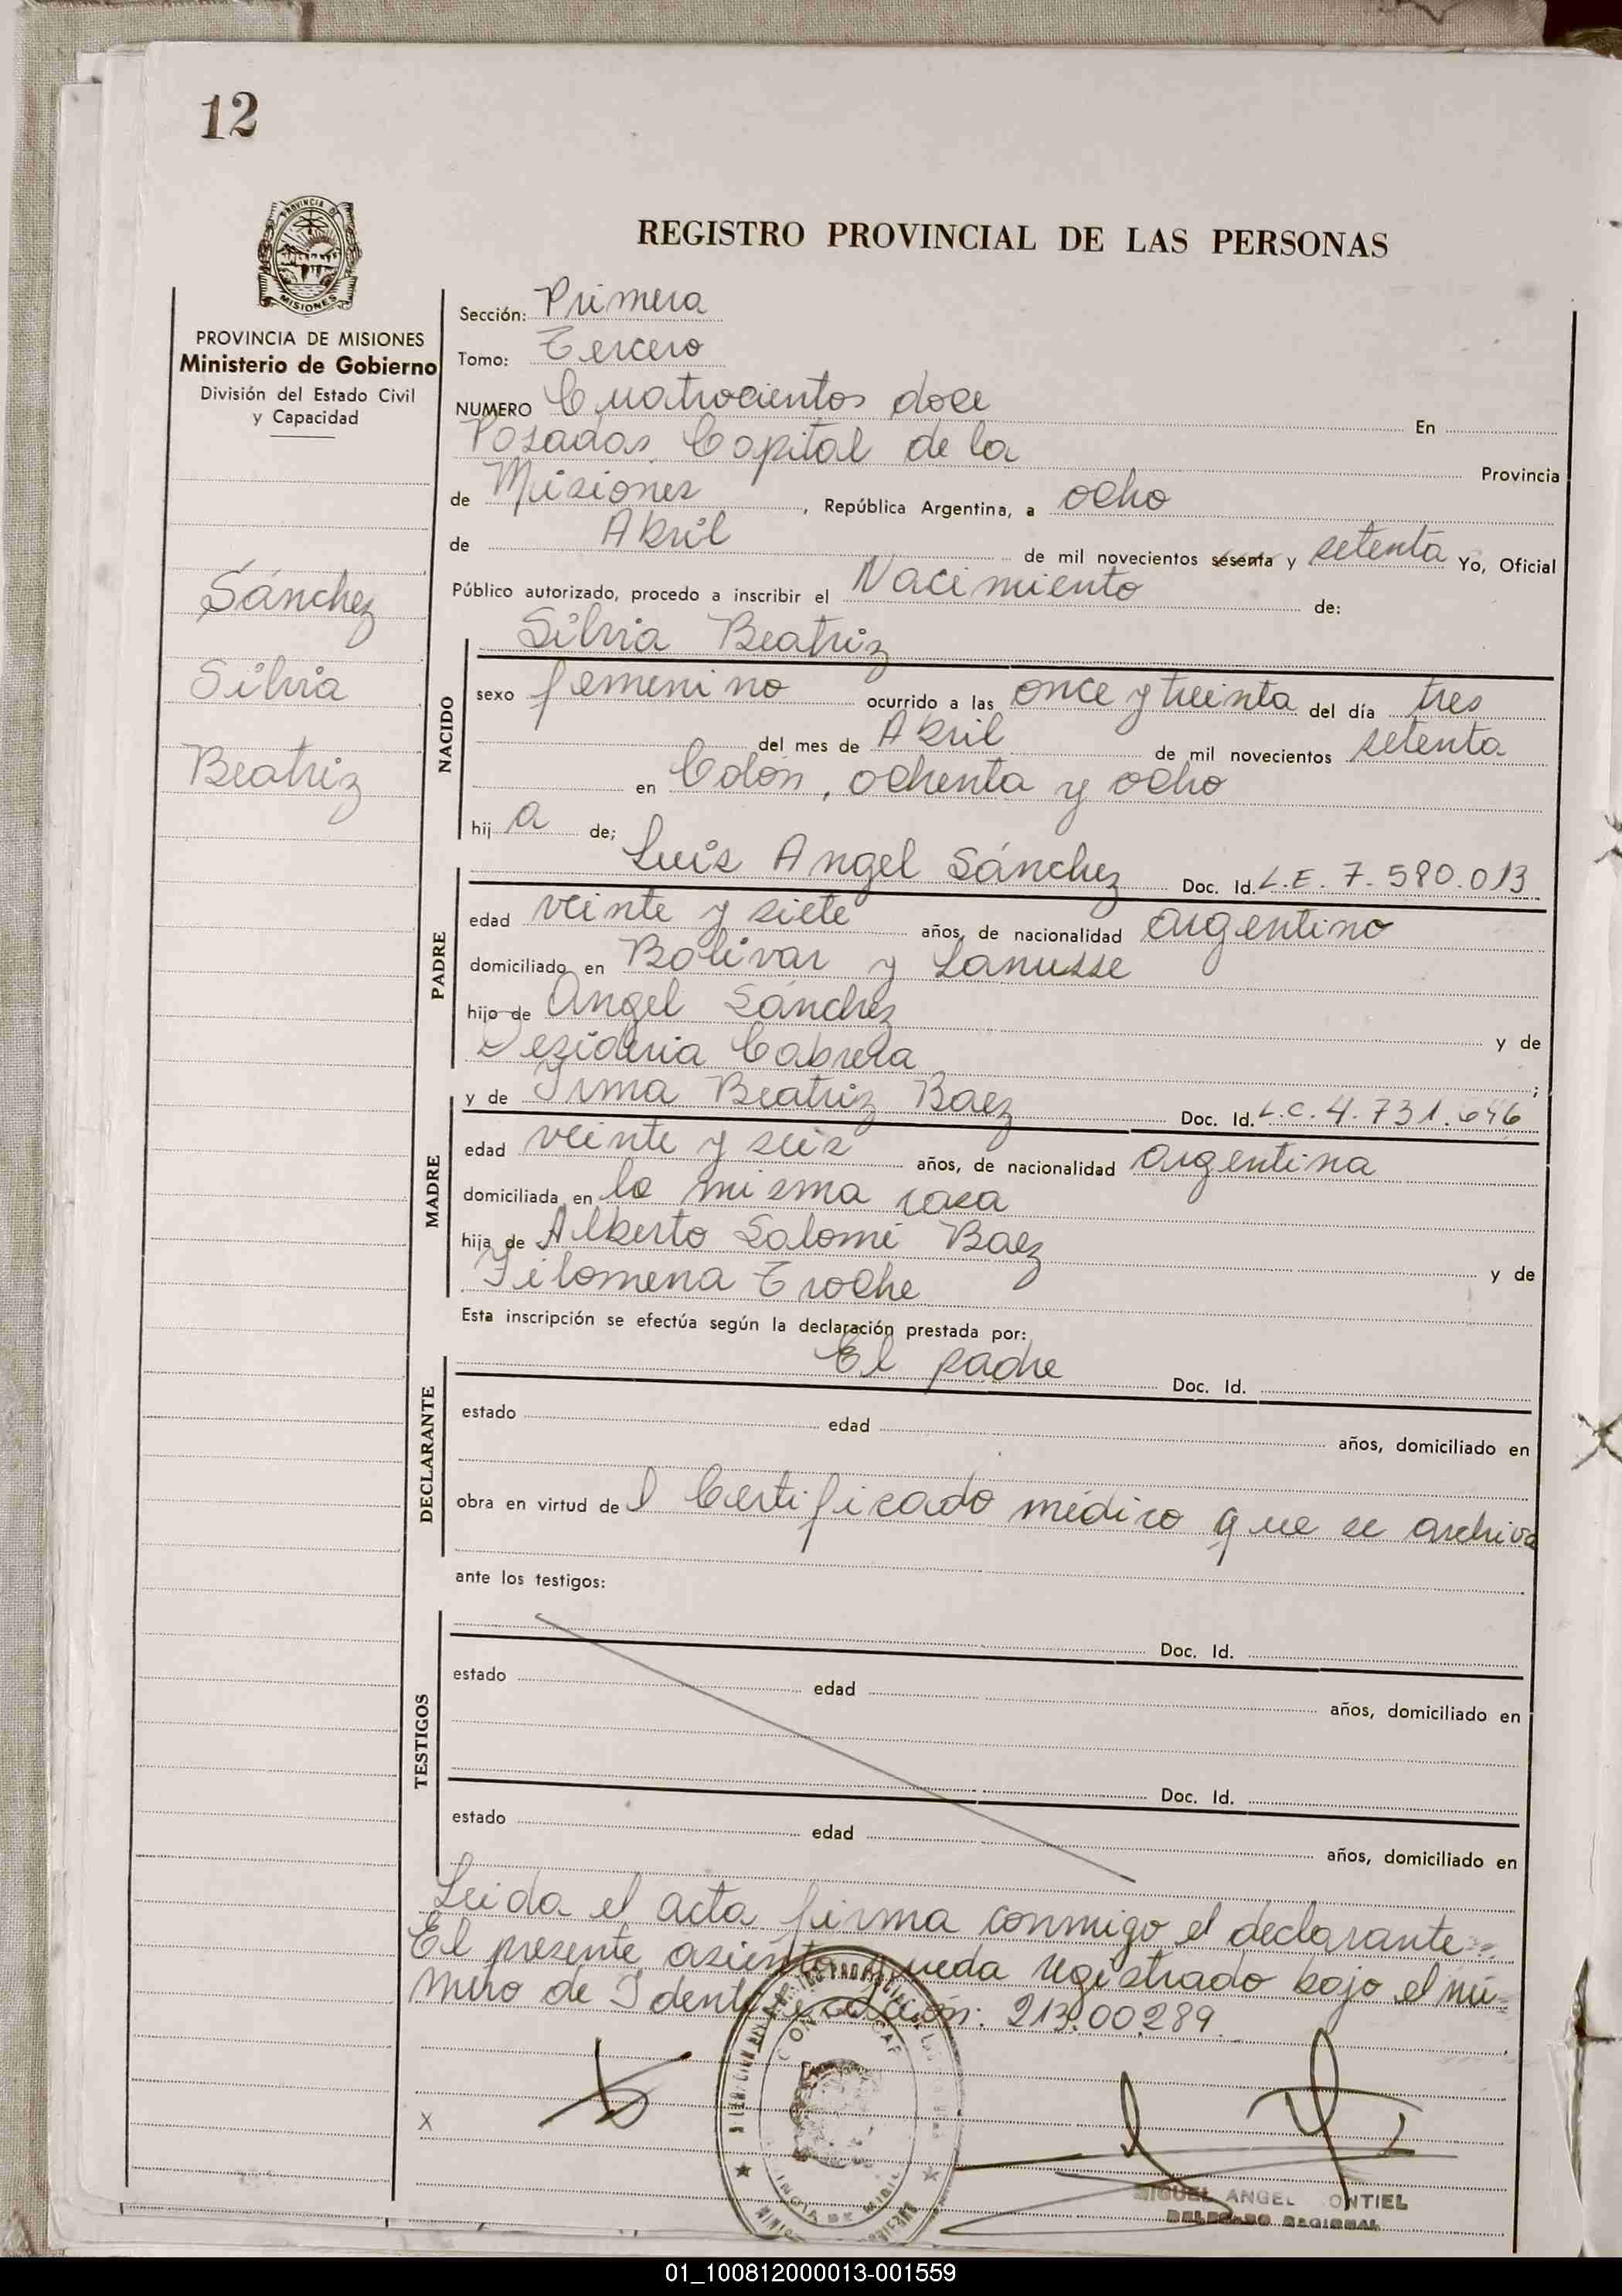 12
PROVINCIA DE
MISIONES
PROVINCIA DE MISIONES
Ministerio de Gobierno
División del Estado Civil
y Capacidad
Sánchez
Silvia
Beatriz
REGISTRO PROVINCIAL DE LAS PERSONAS
Sección: Primera
Tomo: Tercero
NUMERO Cuatrocientos doce En
Posadas, Capital de la Provincia
de Misiones, República Argentina, a ocho
de Abril de mil novecientos sesenta y setenta Yo, Oficial
Público autorizado, procedo a inscribir el Nacimiento de:
Silvia Beatriz
NACIDO
sexo femenino ocurrido a las once y treinta del día tres
del mes de Abril de mil novecientos setenta
en Colón, ochenta y ocho
hij a de;
Luis Angel Sánchez Doc. Id. L.E. 7.580.013
PADRE
edad veinte y siete años, de nacionalidad argentino
domiciliado en Bolívar y Lanusse
hijo de Angel Sánchez y de
Dezideria Cabrera ;
y de Irma Beatriz Baez Doc. Id. L.C. 4.731.646
MADRE
edad veinte y seis años, de nacionalidad argentina
domiciliada en la misma casa
hija de Alberto Salomé Baez y de
Filomena Troche
Esta inscripción se efectúa según la declaración prestada por:
El padre Doc. Id.
DECLARANTE
estado edad años, domiciliado en
obra en virtud del Certificado médico que se archiva
ante los testigos:
Doc. Id.
TESTIGOS
estado edad años, domiciliado en
Doc. Id.
estado edad años, domiciliado en
Leida el acta firma conmigo el declarante.
El presente asiento queda registrado bajo el nú-
mero de Identificación: 213.00.289.
X
MIGUEL ANGEL ONTIEL
DELEGADO REGIONAL
01_100812000013-001559